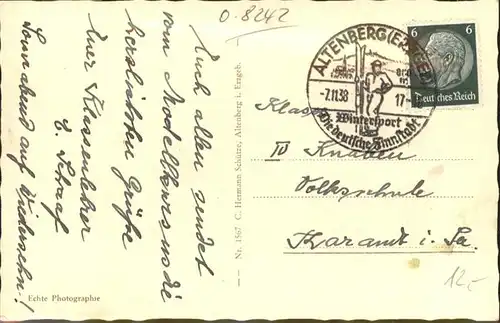 0.8242
Euch allen sendet
vom Modellkursus die
herzlichsten Grüße
Euer Klassenlehrer
Sonnabend auf Wiedersehn!
Echte Photographie
Nr. 1567 C. Hermann Schütze, Altenberg i. Erzgeb.
ALTENBERG (ERZGEB)
-7.11.38 17-
Wintersport
Die deutsche Zinnstadt
6 6
Deutsches Reich
Klasse
IV Knaben
Volksschule
i. Sa.
12,-